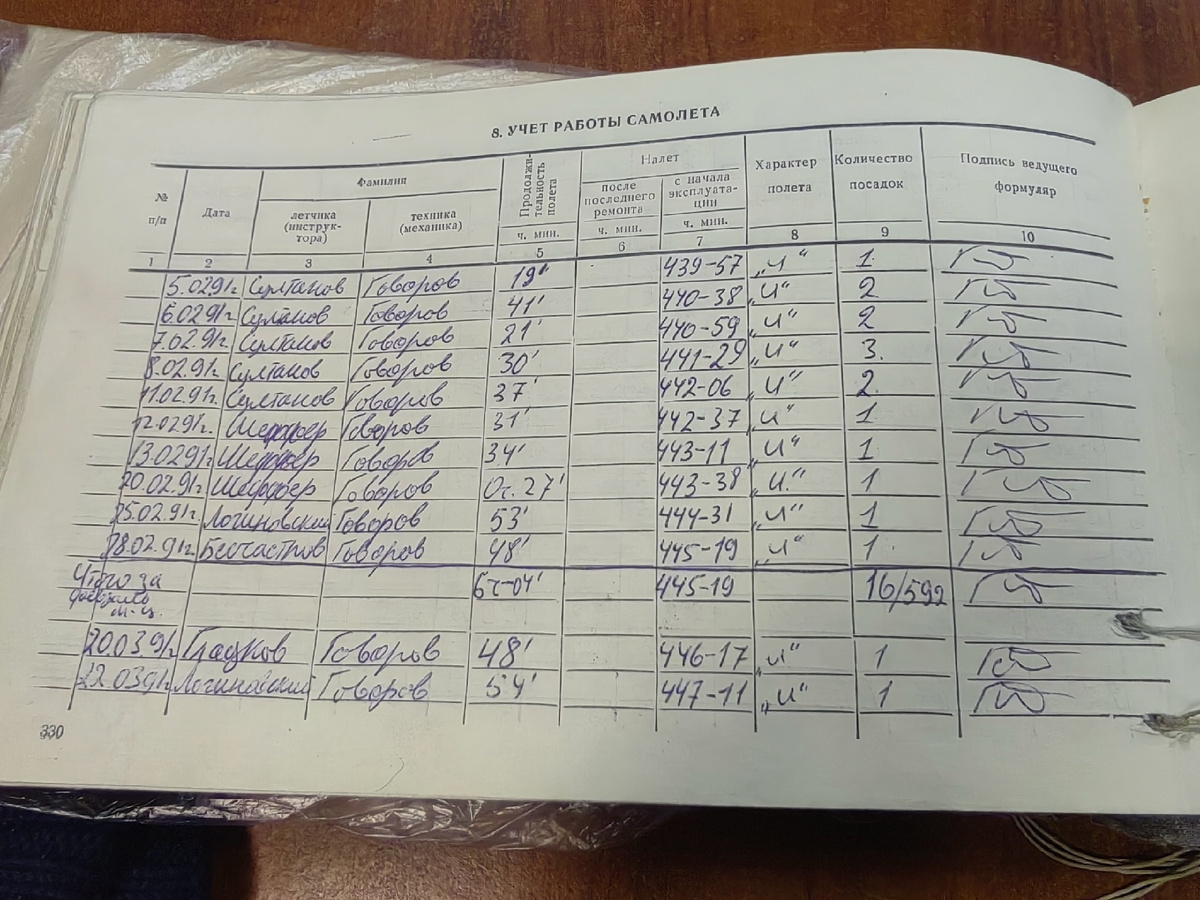 8. УЧЕТ РАБОТЫ САМОЛЕТА
№ п/п Дата Фамилия Продолжи-тельность полета Налет Характер полета Количество посадок Подпись ведущего формуляр
летчика (инструк-тора) техника (механика) после последнего ремонта с начала эксплуата-ции
ч. мин. ч. мин. ч. мин.
1 2 3 4 5 6 7 8 9 10
5.0291г. Султанов Говоров 19' 439-57 „И“ 1.
6.0291г. Султанов Говоров 41' 440-38 „И“ 2
7.0291г. Султанов Говоров 21' 440-59 „И“ 2
8.02.91г. Султанов Говоров 30' 441-29 „И“ 3.
11.02.91г. Султанов Говоров 37' 442-06 „И“ 2.
12.0291г. Шеффер Говоров 31' 442-37 „И“ 1
13.0291г. Шеффер Говоров 34' 443-11 „И“ 1
20.02.91г. Шеффер Говоров 0ч.27' 443-38 „И.“ 1
25.02.91г. Логиновский Говоров 53' 444-31 „И“ 1
28.02.91г. Бесчастнов Говоров 48' 445-19 „И“ 1
Итого за 6ч-04' 445-19 16/592
м-ц.
20.0391г. Гладков Говоров 48' 446-17 „И“ 1
22.0391г. Логиновский Говоров 54' 447-11 „И“ 1
330